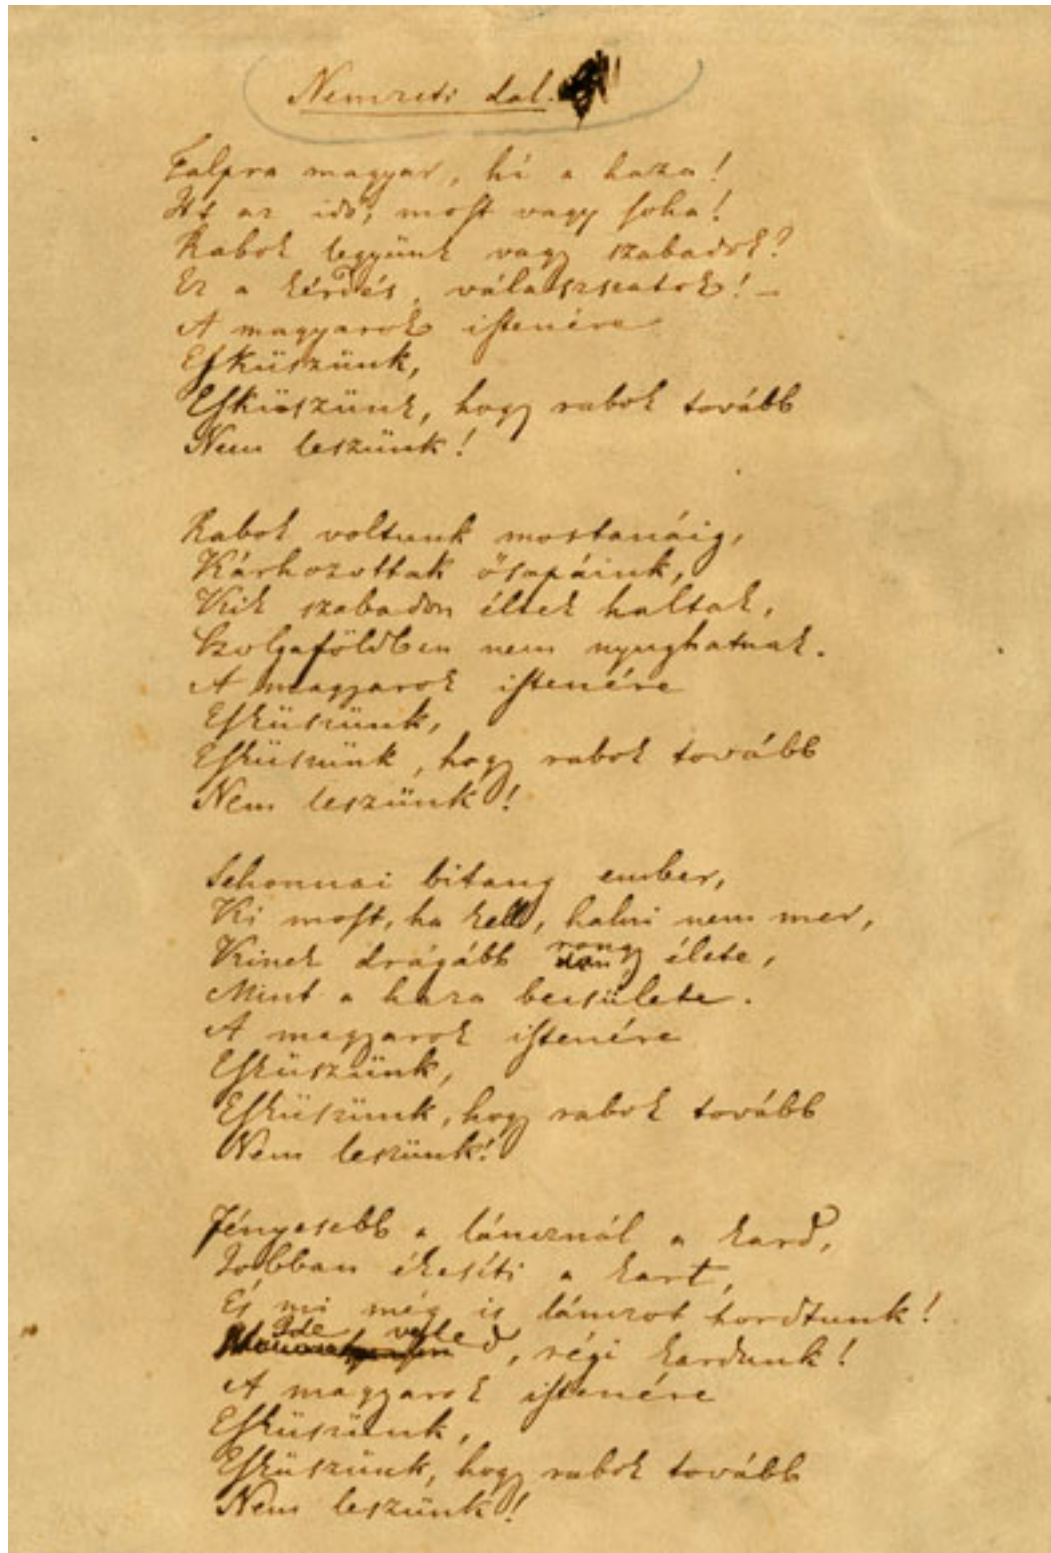 Nemzeti dal.
Talpra magyar, hí a haza!
Itt az idő, most vagy soha!
Rabok legyünk vagy szabadok?
Ez a kérdés, válaszszatok! –
A magyarok istenére
Esküszünk,
Esküszünk, hogy rabok tovább
Nem leszünk!
Rabok voltunk mostanáig,
Kárhozottak ősapáink,
Kik szabadon éltek haltak,
Szolgaföldben nem nyughatnak.
A magyarok istenére
Esküszünk,
Esküszünk, hogy rabok tovább
Nem leszünk!
Sehonnai bitang ember,
Ki most, ha kell, halni nem mer,
Kinek drágább rongy élete,
Mint a haza becsülete.
A magyarok istenére
Esküszünk,
Esküszünk, hogy rabok tovább
Nem leszünk!
Fényesebb a láncznál a kard,
Jobban ékesíti a kart,
És mi még is lánczot hordtunk!
Ide veled, régi kardunk!
A magyarok istenére
Esküszünk,
Esküszünk, hogy rabok tovább
Nem leszünk!